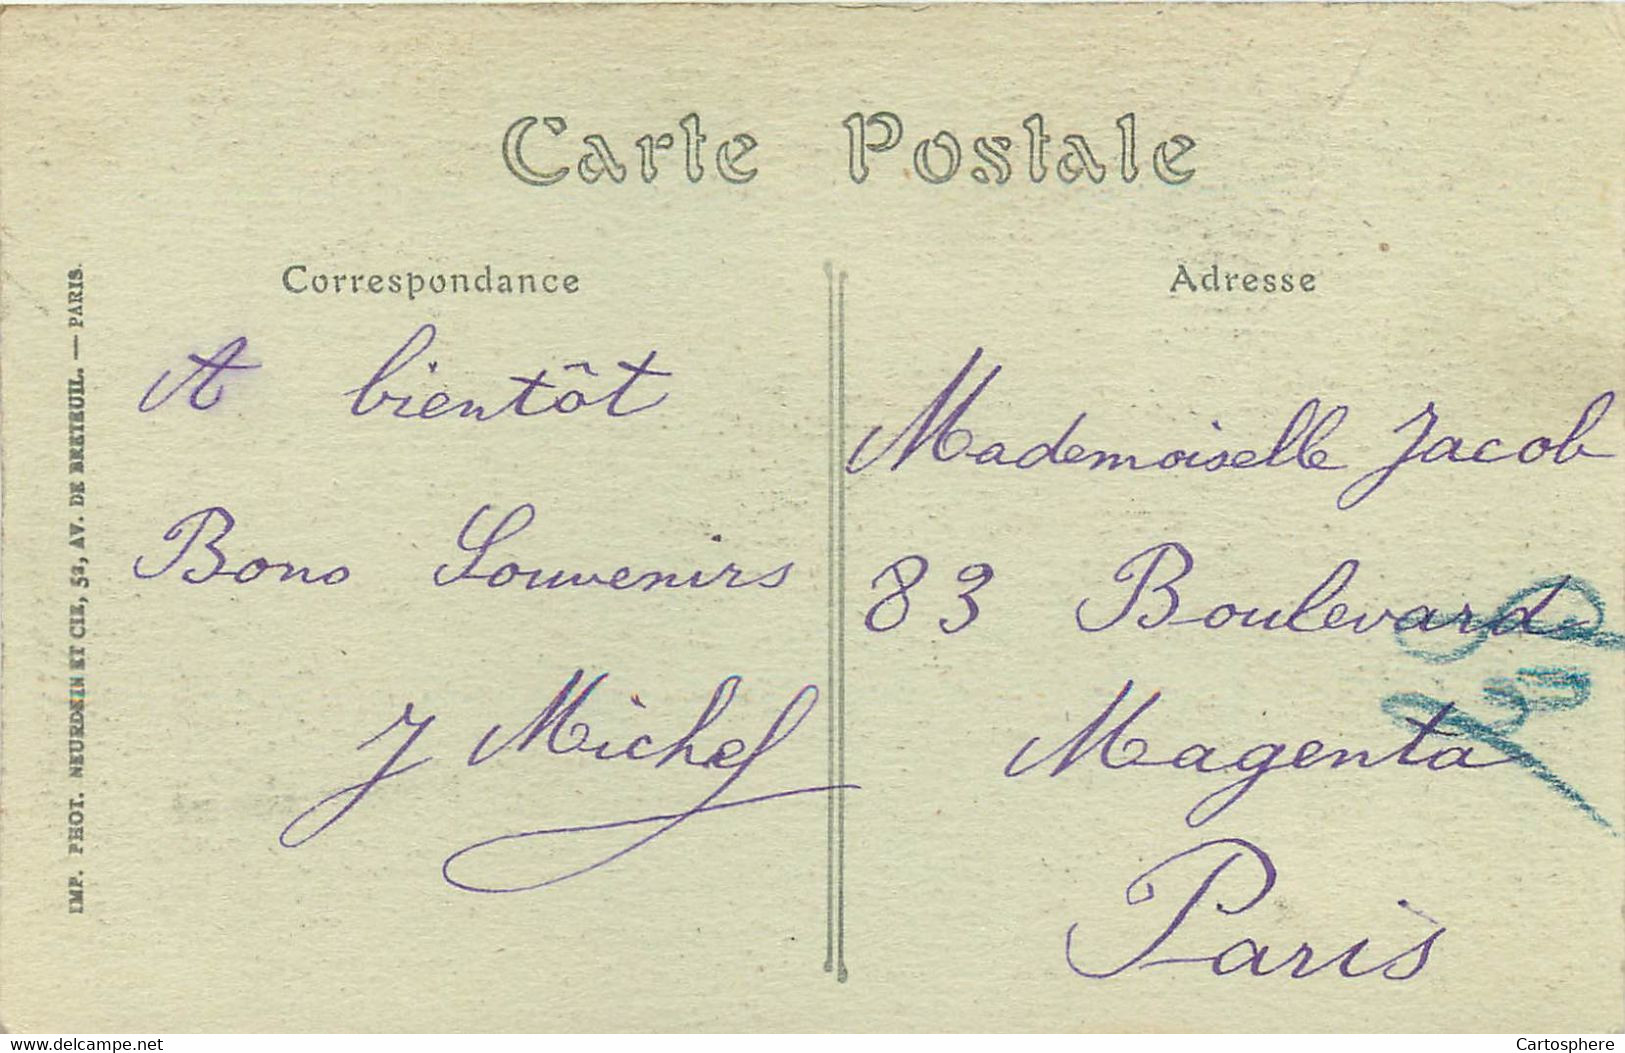 Carte Postale
Correspondance
A bientôt
Bons Souvenirs
J Michel
Adresse
Mademoiselle Jacob
83 Boulevard
Magenta
Paris
IMP. PHOT. NEURDEIN ET CIE, 52, AV. DE BRETEUIL. — PARIS.
www.delcampe.net
Cartosphere